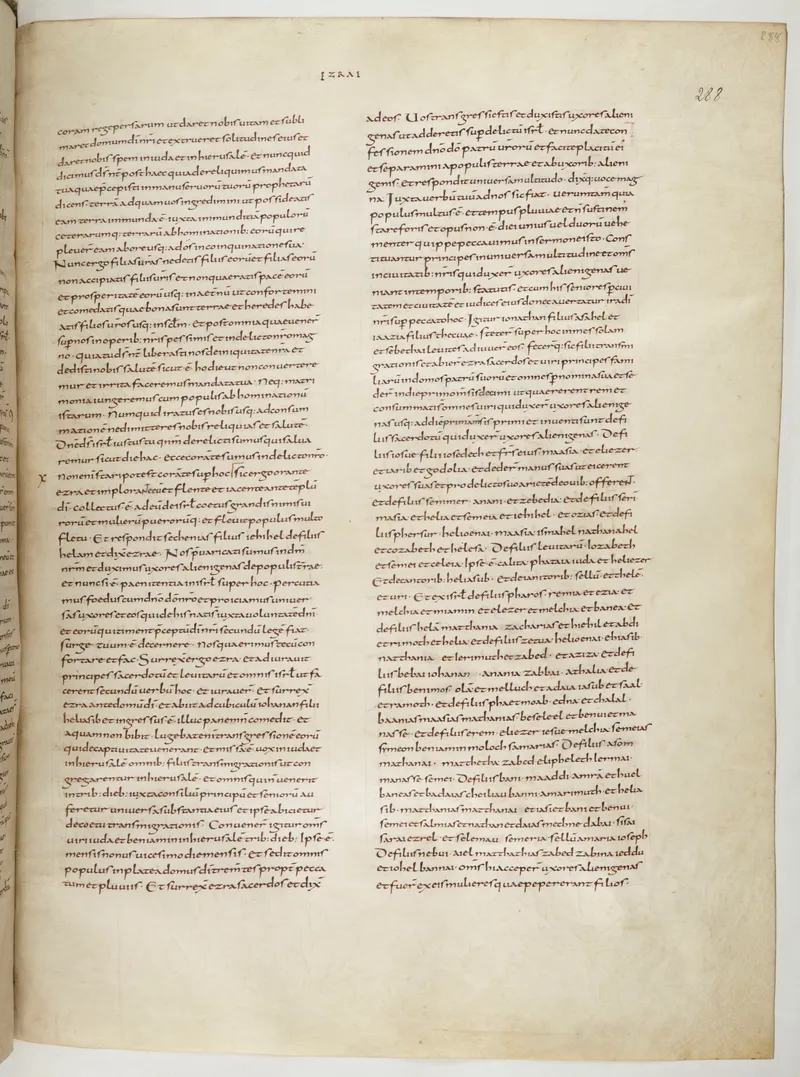 IZRAI
288
288
coram rege persarum ut daret nobis uitam et subli
maret domum dī nr̄i et extrueret solitudines eius et
daret nobis spem in iuda et in hierusalē · et nunc quid
dicimus dš nr̄ post haec quia dereliquimus mandata
tua quae p̄cepisti in manu seruorū tuorū prophetarū
dicens · terra ad quam uos ingredimini ut possideatis
eam terra inmunda ē · iuxta inmunditiā populorū
ceterarumq; terrarū abhominationib; eorū qui re
pleuer̄ eam ab ore usq; ad os in coinquinatione sua ·
Nunc ergo filias ur̄as ne detis filiis eorū et filias eorū
non accipiatis filiis ur̄is et non quaeratis pacē eorū
et prosperitatē eorū usq; in aet̄nū ut confortemini
et comedatis quae bona sunt terrae et heredes habe
atis filios ur̄os usq; in sclm̄ · Et post omnia quae uener̄
sup̄ nos in operib; nr̄is pessimis et in delicto nr̄o mag
no · quia tu dš nr̄ liberasti nos de iniquitate nr̄a et
dedisti nobis salutē sicut ē hodie ut non conuertere
mur et irrita faceremus mandata tua · Neq; matri
monia iungeremus cum populis abhominationū
istarum · Numquid iratus es nobis usq; ad consum
mationē ne dimitteres nobis reliquias et salutē ·
Dn̄e dš isrt̄ iustus tu qnm̄ derelicti sumus qui salua
remur sicut die hac · Ecce corā te sumus in delicto nr̄o ·
X
non enī stari potest corā te sup̄ hoc · Sic ergo orante
ezra et implorante eū et flente et iacente ante tēplū
dī · collectus ē ad eū de isrt̄ coetus grandis nimis ui
rorū et mulierū puerorūq; et fleuit populus multo
fletu · Et respondit sechenias filius iehihel de filiis
helam et dix̄ ezrae · Nos p̄uaricati sumus in dm̄
nr̄m et duximus uxores alienigenas de populis tr̄rae ·
et nunc si ē paenitentia in isrt̄ super hoc · percutia
mus foedus cum dn̄o dō nr̄o et proiciamus uniuer
sas uxores et eos qui de his nati s̄ iuxta uoluntatē dn̄i
et eorū qui timent p̄ceptū dī nr̄i secundū legē fiat ·
surge · tuum ē decernere · Nosq; erimus tecū con
fortare et fac · Surrex̄ ergo ezra · et adiurauit
principes sacerdotū et leuitarū et omnē isrt̄ ut fa
cerent secundū uerbū hoc · et iurauer̄ · Et surrex̄
ezra ante domū dī · et abiit ad cubiculū iohanan filii
heliasib et ingressus ē illuc panem n̄ comedit · et
aquam non bibit · Lugebat enī transgressionē eorū
qui de captiuitate uenerant · et missa ē uox in iuda et
in hierusalē omnib; filiis transmigrationis ut con
gregarentur in hierusalē · et omnis qui n̄ uenerit
in trib; dieb; iuxta consiliū principū et seniorū au
feretur uniuersa substantia eius et ipse abicietur
de coetu transmigrationis · Conuener̄ igitur om̄s
uiri iuda et beniamin in hierusalē trib; dieb; Ipse ē
mensis nonus uicesimo die mensis · et sedit omnis
populus in platea domus dī trem̄tes prop̄t pecca
tum et pluuiis · Et surrex̄ ezra sacerdos et dix̄
ad eos · Uos transgressi estis et duxistis uxores alieni
genas ut adderetis sup̄ delictū isrt̄ · et nunc date con
fessionem dn̄o dō patrū ur̄orū et facite placitū ei
et separamini a populis terrae et ab uxorib; alieni
genis · et respondit uniuersa multitudo · dixq; uoce mag
na · Iuxta uerbū tuū ad nos sic fiat · uerumtam̄ quia
populus multus ē · et tempus pluuiae et n̄ sustinem
stare foris et opus non ē diei unius uel duorū uehe
menter quippe peccauimus in sermone isto · Cons
tituantur principes in uniuersa multitudine et om̄s
in ciuitatib; nr̄is qui duxer̄ uxores alienigenas ue
niant in temporib; statutis · et cum his seniores p̄ ciui
tatem et ciuitatē et iudices eius donec auertatur ira dī
nr̄i sup̄ peccato hoc · Igitur ionathan filius asahel et
iaazia filius thecuae · steter̄ super hoc in mesollam
et sebethai leuites adiuuer̄ eos · fecerq; sic filii transm
grationis et abier̄ ezra sacerdos et uiri principes fami
liarū in domos patrū suorū et omnes p̄ nomina sua et se
der̄ in die primo mensis decimi ut quaererent rem et
consummati s̄ omnes uiri qui duxer̄ uxores alienige
nas usq; ad diē primā mensis primi et inuenti sunt de fi
liis sacerdotū qui duxer̄ uxores alienigenas · De fi
liis iosue · filii iosedech et fr̄s eius maasia et eliezer ·
et iarib et godolia · et deder̄ manus suas ut eicerent
uxores suas et pro delicto suo arietē de ouib; offerent ·
et de filiis semmer · anani · et zebedia · et de filiis seri
masia · et helia et semeia et iehihel · et ozias et de fi
liis phersur · helioenai · maasia · ismahel nathanahel
et iozabeth et helesa · De filiis leuitarū · iozabeth
et semei et celeia · Ipse ē calita · phataia iuda et heliezer
Et de cantorib; heliasub · et de ianitorib; sellū et thele
et uri · Et ex isrt̄ de filiis pharos · remia et ezia · et
melchia et miamin et eliezer et melchia et banea · et
de filiis helā matthania · zacharias et hiehil et abdi
et irimoth et helia · et de filiis zetua · helioenai · eliasib
matthania · et ierimuth et zabed · et aziza · et de fi
liis bebai iohanan · anania zabbai · athalia et de
filiis beni mos · olā et melluch et adaia iasub et saal
et ramoth · et de filiis phaetmoab · edna et chalal ·
baanias maasias mathanias beseleel et bennui et ma
nasse · et de filiis erem · eliezer iesue melchia semeias
semeon beniamin moloch samarias · De filiis asom
mathanai · matthetha zabed eliphelech iermai ·
manasse semei · De filiis bani · maaddi amrā et huel
baneas et badaias cheiliau banni · amarimuth et helia
sib · matthanias matthanai · et iasi et bani et bennui ·
semei et salmias et nathan et daias mechne dabai · sisai
sarai ezrel · et selemau · semeria sellū amaria ioseph
De filiis nebui · aiel matthathias zabed zabina ieddu
et iohel bannai · om̄s hi acceper̄ uxores alienigenas
et fuer̄ ex eis mulieres quae pepererant filios ·